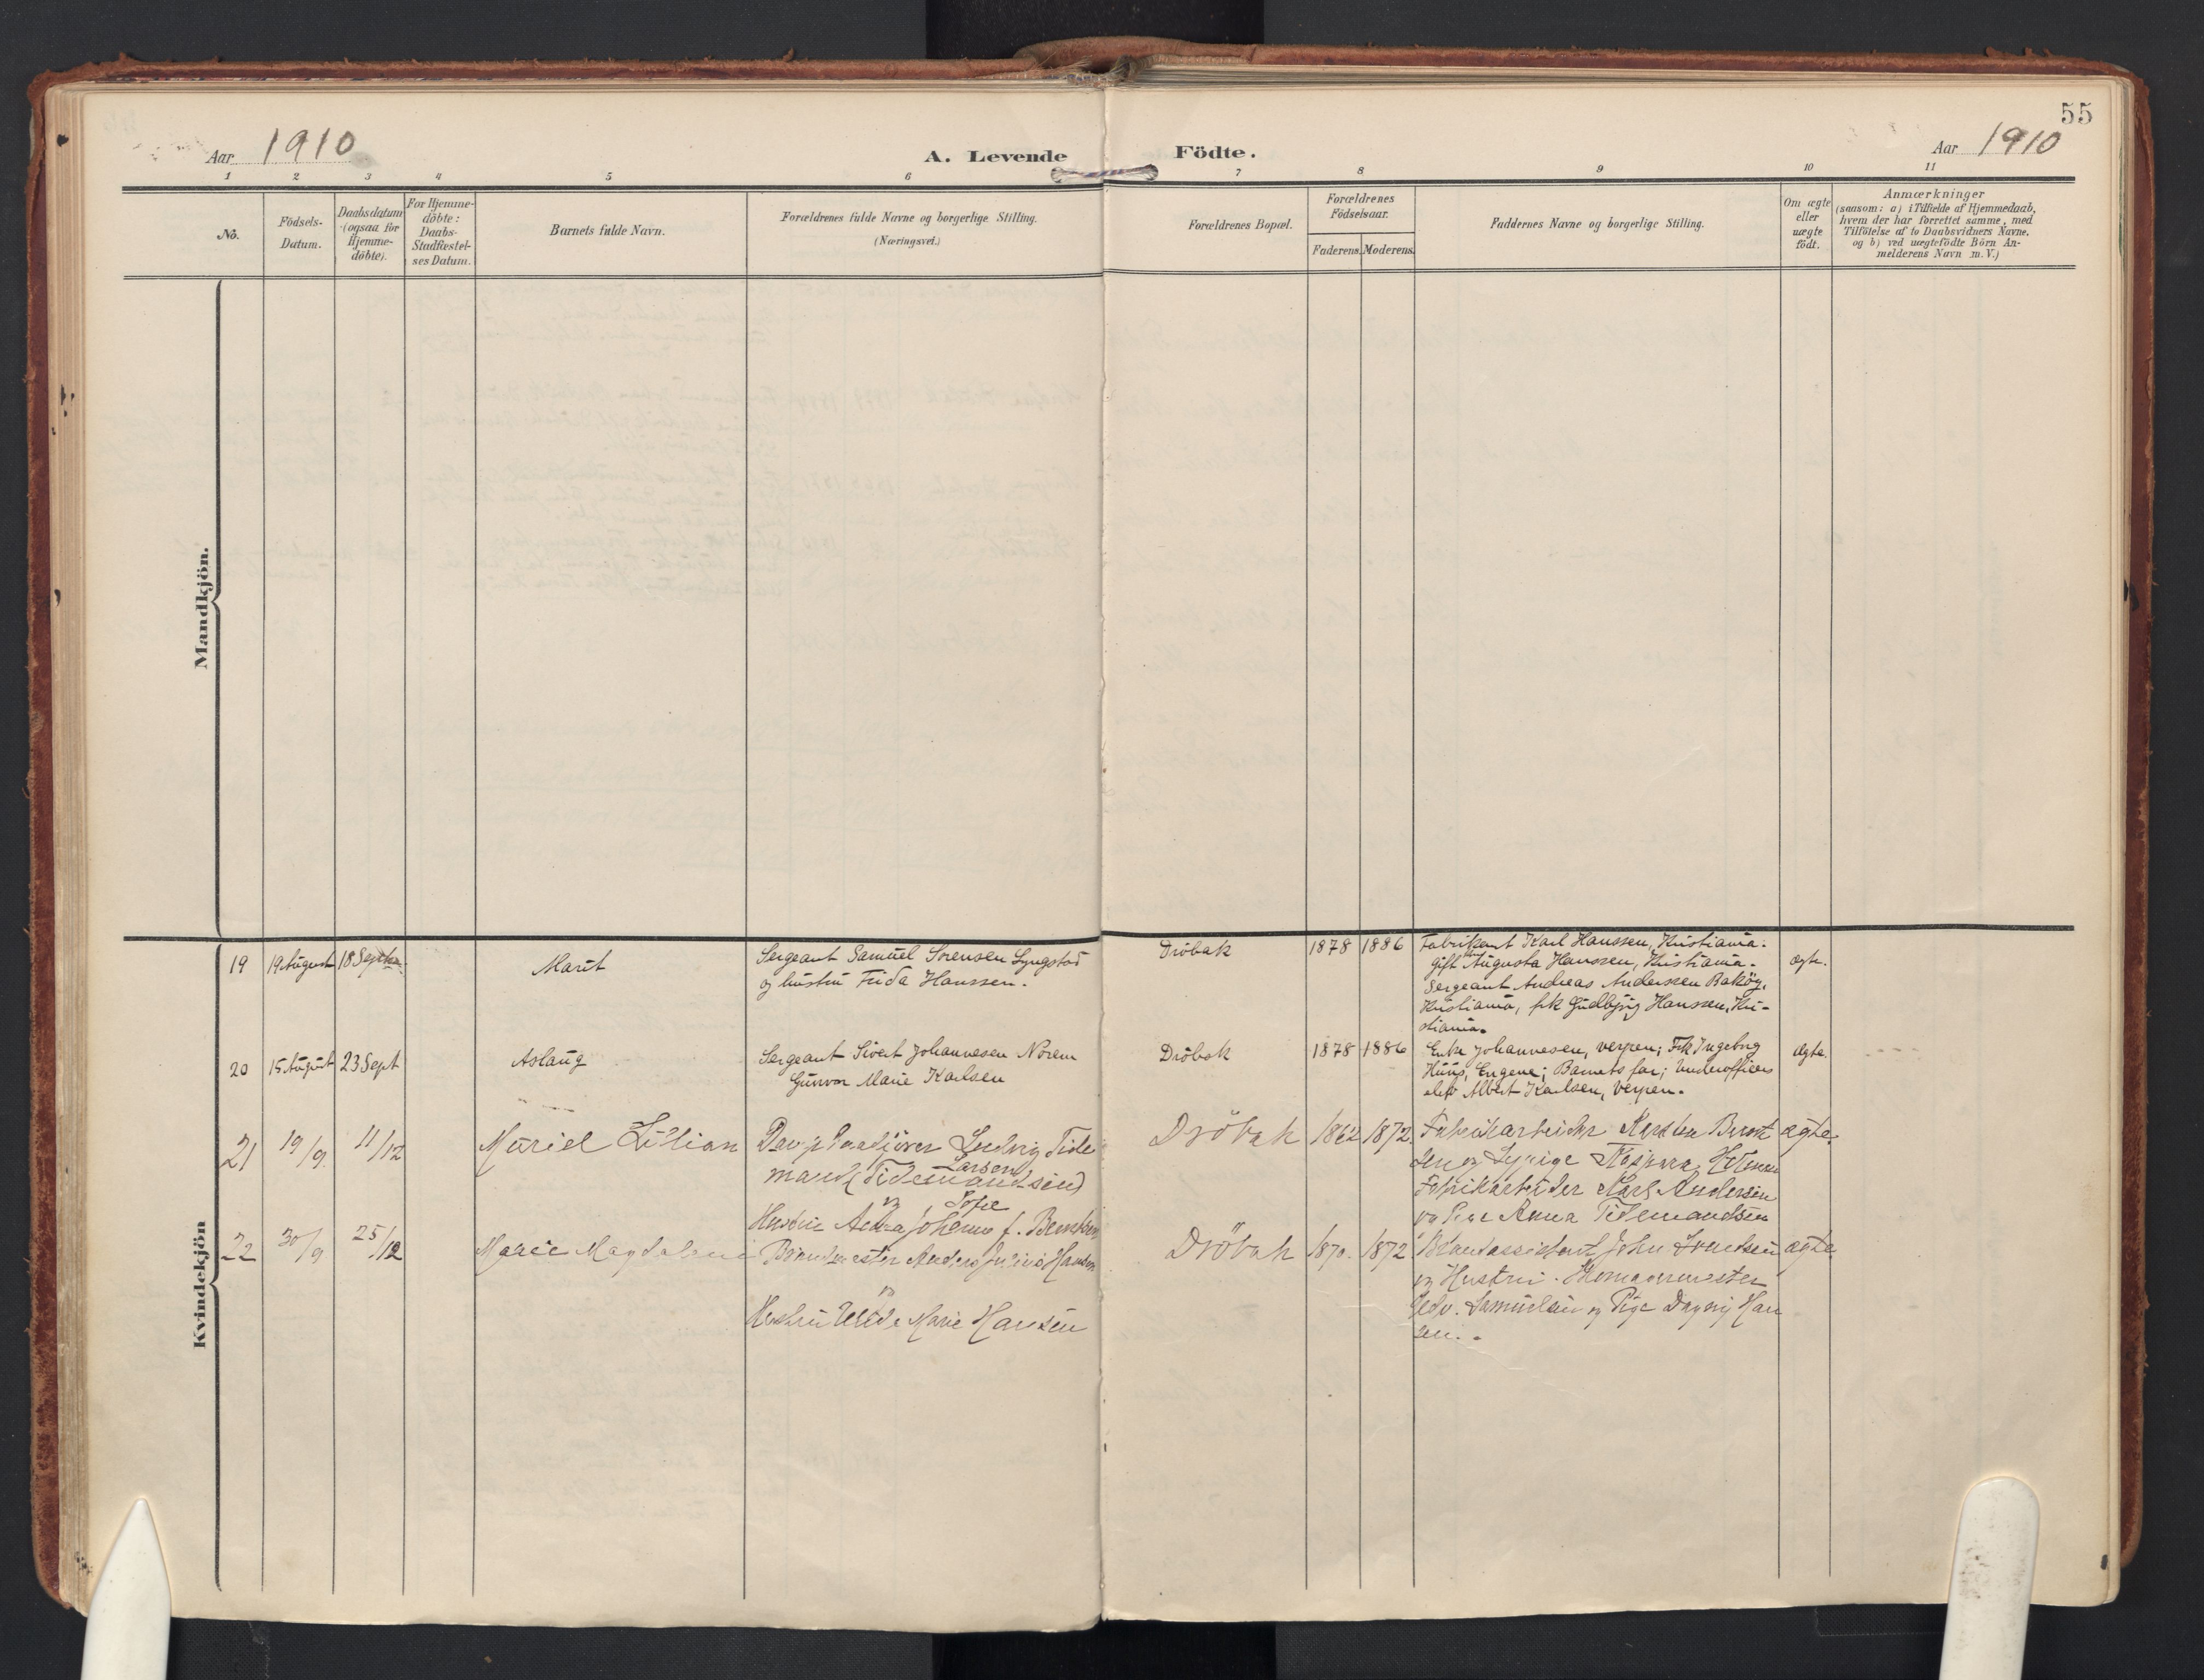 55
Aar 1910
A. Levende Födte.
Aar 1910
1 2 3 4 5 6 7 8 9 10 11
No.
Födsels-
Datum.
Daabsdatum
(ogsaa for
Hjemme-
döbte).
For Hjemme-
döbte:
Daabs-
Stadfæstel-
ses Datum.
Barnets fulde Navn.
Forældrenes fulde Navne og borgerlige Stilling.
(Næringsvei.)
Forældrenes Bopæl.
Forældrenes
Födselsaar.
Faderens. Moderens.
Faddernes Navne og borgerlige Stilling.
Om ægte
eller
uægte
födt.
Anmærkninger
(saasom: a) i Tilfælde af Hjemmedaab,
hvem der har forrettet samme, med
Tilföielse af to Daabsvidners Navne.
og b) ved uægtefödte Börn An-
melderens Navn m. V.)
Mandkjön.
Kvindekjön
19 19 August 18 Septbr. Marit
Sergeant Samuel Sørensen Lyngstad
og hustru Frida Hanssen.
Dröbak 1878 1886
Fabrikant Karl Hanssen, Kristiania.
Gift Augusta Hanssen, Kristiania.
Sergeant Andreas Anderssen Baköy,
Kristiania, frk Gudbjörg Hanssen, Kri-
stiania.
ægte.
20 15 August 23 Sept Aslaug
Sergeant Sivert Johannesen Norem
Gunvor Marie Karlsen
Dröbak 1878 1886
Enke Johannesen, Verpen; Frk Ingeborg
Huus, Engene; Barnets far; Underofficers
elev Albert Karlsen, Verpen.
Ægte.
21 19/9 11/12 Muriel Lilian
Ludvig Tide
mand Larsen
(Tidemandsen)
og
Hustru Johanne f. Berntsen
Dröbak 1862 1872
Fabrikarbeider Karsten Bernt
sen og
Fabrikarbeider Karl Andersen
og Pige Anna Tidemandsen
ægte.
22 30/9 25/12 Marie Magdalene
Brandmester Anders Julius Hansen
og
Hustru Hilda Marie Hansen
Dröbak 1870. 1872
Brandassistent John
og Hustru.
Edv. Samuelsen og Pige Dagny Han
sen.
ægte.